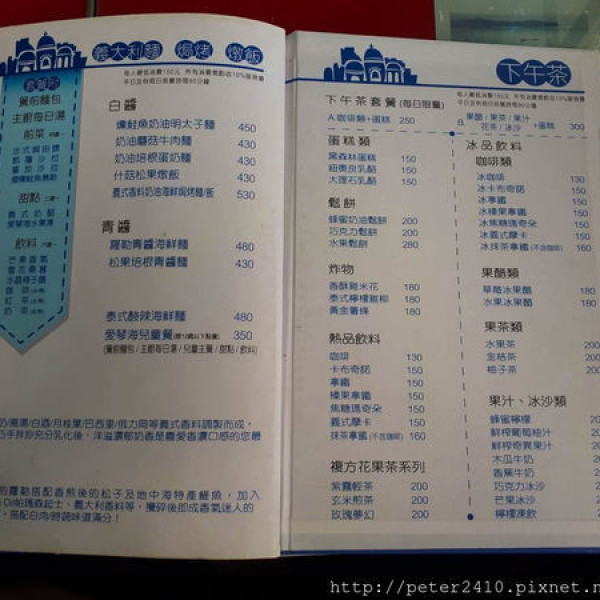 義大利麵 焗烤 燉飯
每人最低消費150元 所有消費需酌收10%服務費
平日及例假日用餐時間90分鐘
餐前麵包
主廚每日湯
前菜
甜點
飲料
白醬
燻鮭魚奶油明太子麵 450
奶油蘑菇牛肉麵 430
奶油培根蛋奶麵 430
什菇松果燉飯 430
義式香料奶油海鮮焗烤麵/飯 530
青醬
羅勒青醬海鮮麵 480
松果培根青醬麵 430
泰式酸辣海鮮麵 480
愛琴海兒童餐 350
(餐前麵包/主廚每日湯/兒童主餐/甜點/飲料)
奶/高湯/白酒/月桂葉/巴西里/俄力岡等義式香料調製而成，
巧手拌炒充分乳化後，洋溢濃郁奶香是喜愛香濃口感的您最
的羅勒搭配香煎後的松子及地中海特產鯷魚，加入
Oil帕瑪森起士、義大利香料等，攪碎後即成香氣迷人的
，搭配白肉/時蔬味道滿分！
下午茶
每人最低消費150元 所有消費需酌收10%服務費
平日及例假日用餐時間90分鐘
下午茶套餐(每日限量)
A.咖啡類+蛋糕 250
B. 果酷/果茶/果汁
花茶/冰沙 +蛋糕 300
蛋糕類
黑森林蛋糕 150
紐奧良乳酪 150
大理石乳酪 150
鬆餅
蜂蜜奶油鬆餅 200
巧克力鬆餅 200
水果鬆餅 280
炸物
香酥雞米花 180
泰式檸檬雞柳 180
黃金薯條 180
熱品飲料
咖啡 130
卡布奇諾 150
拿鐵 150
榛果拿鐵 160
焦糖瑪奇朵 160
義式摩卡 150
抹茶拿鐵(不含咖啡) 160
複方花果茶系列
紫霧輕茶 200
玄米煎茶 200
玫瑰夢幻 200
冰品飲料
咖啡類
冰咖啡 130
冰卡布奇諾 150
冰拿鐵 150
冰榛果拿鐵 160
冰焦糖瑪奇朵 160
冰義式摩卡 150
冰抹茶拿鐵(不含咖啡) 160
果醋類
草莓冰果醋 180
水果冰果醋 180
果茶類
水果茶 200
金桔茶 200
柚子茶 200
果汁、冰沙類
蜂蜜檸檬 200
鮮榨葡萄柚汁 200
鮮榨奇異果汁 200
木瓜牛奶 200
香蕉牛奶 200
巧克力冰沙 200
芒果冰沙 200
檸檬凍飲 200
http://peter2410.pixnet.n